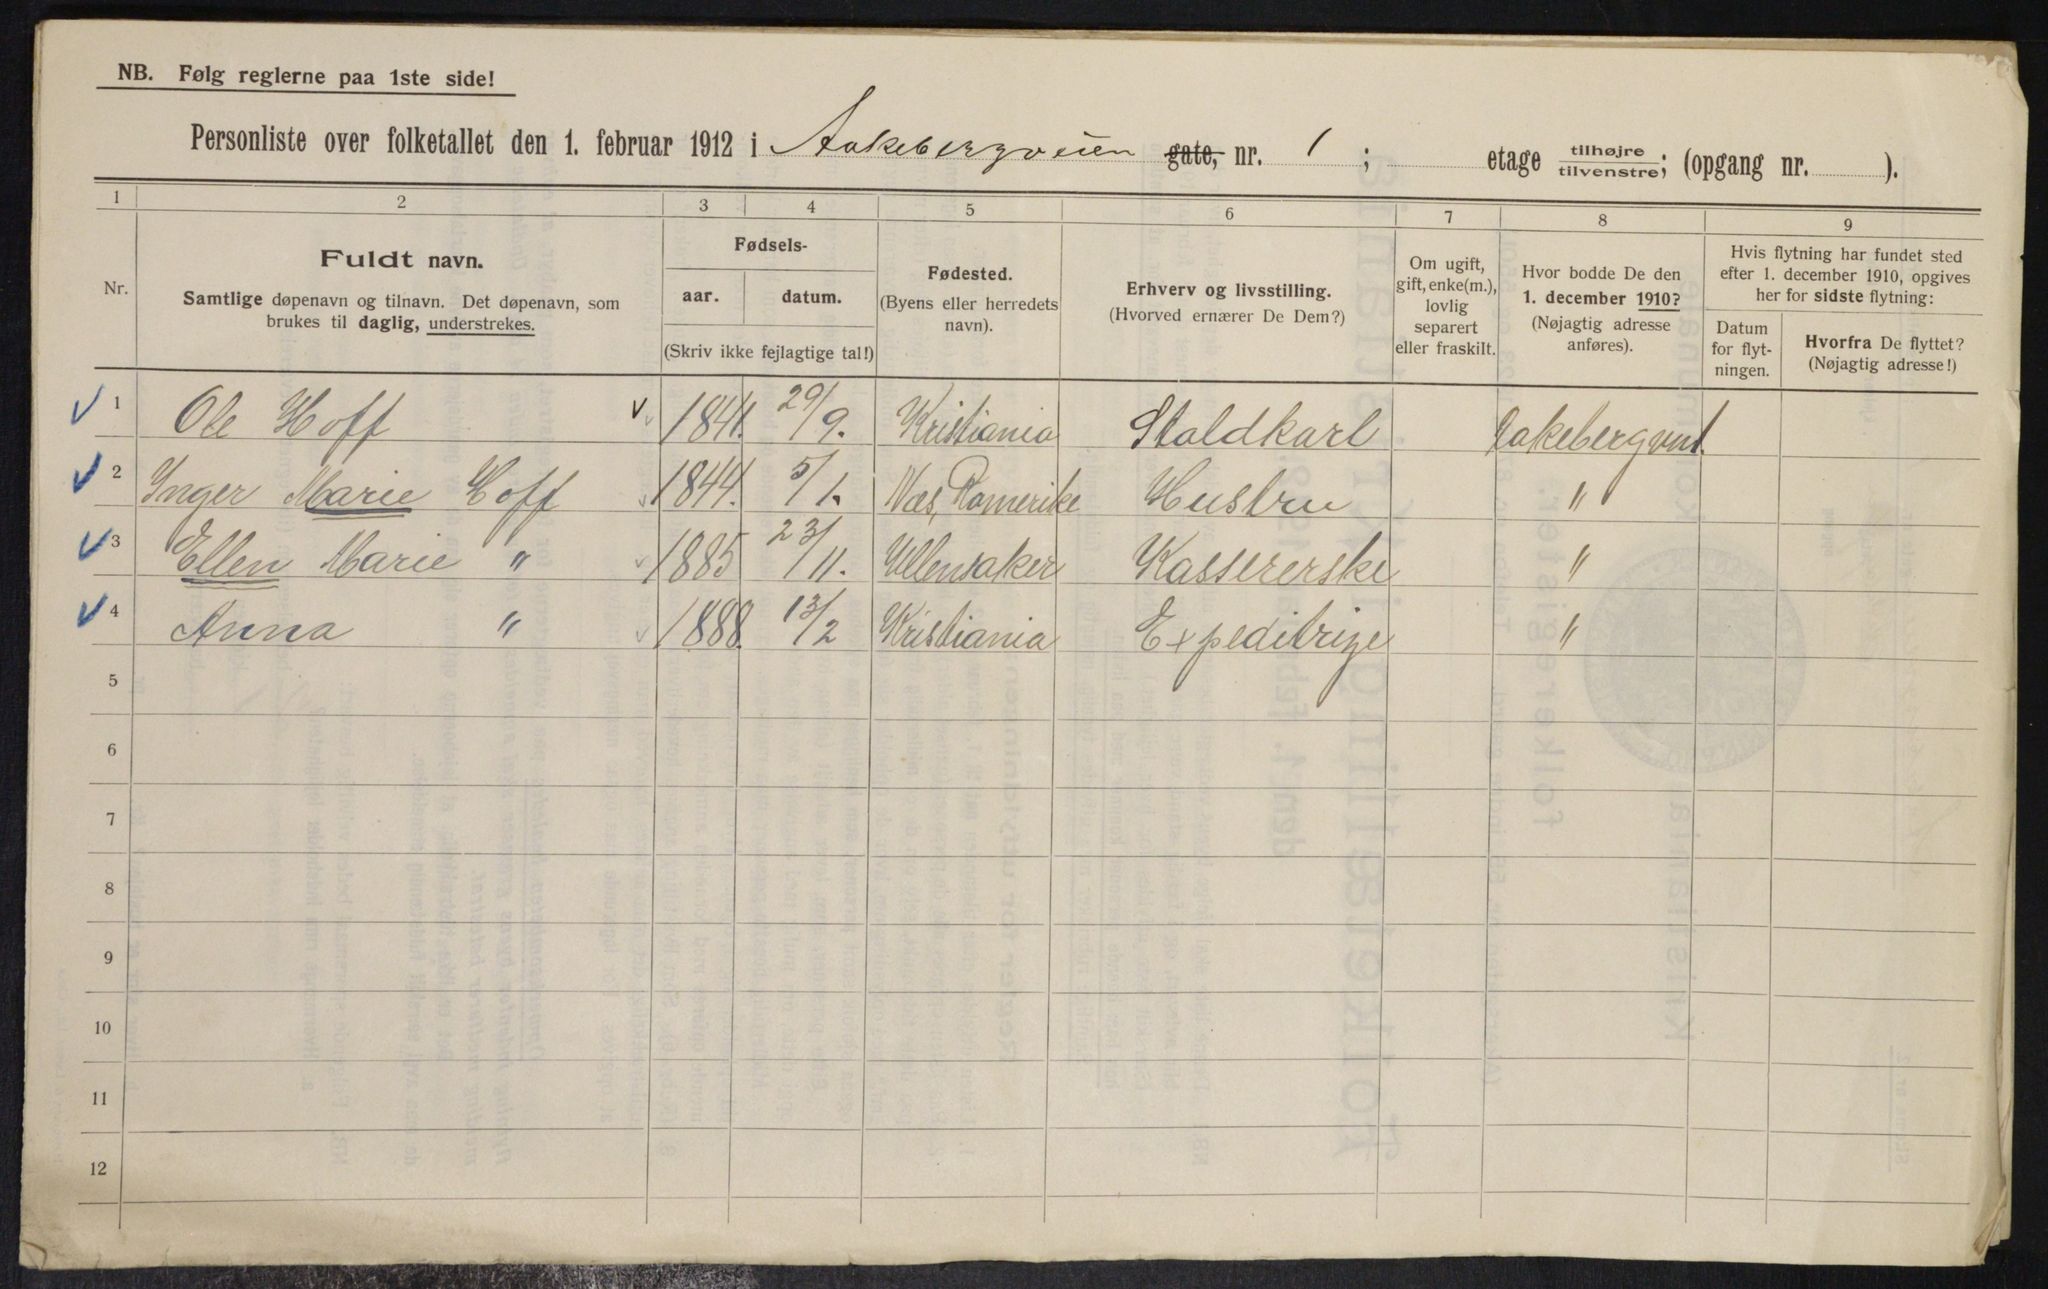 NB. Følg reglerne paa 1ste side!
Personliste over folketallet den 1. februar 1912 i Aakebergveien gate, nr. 1 ; etage tilhøjre tilvenstre; (opgang nr. ).
1 2 3 4 5 6 7 8 9
Nr.
Fuldt navn.
Samtlige døpenavn og tilnavn. Det døpenavn, som
brukes til daglig, understrekes.
Fødsels-
aar. datum.
(Skriv ikke fejlagtige tal!)
Fødested.
(Byens eller herredets
navn).
Erhverv og livsstilling.
(Hvorved ernærer De Dem?)
Om ugift,
gift, enke(m.),
lovlig
separert
eller fraskilt.
Hvor bodde De den
1. december 1910?
(Nøjagtig adresse
anføres).
Hvis flytning har fundet sted
efter 1. december 1910, opgives
her for sidste flytning:
Datum
for flyt-
ningen.
Hvorfra De flyttet?
(Nøjagtig adresse!)
1 Ole Hoff 1841. 29/9. Kristiania Staldkarl Aakebergvn1.
2 Inger Marie Hoff 1844. 5/1. Næs, Romerike Hustru "
3 Ellen Marie " 1885 23/11. Ullensaker Kassererske "
4 Anna " 1888. 13/2 Kristiania Expeditrise "
5
6
7
8
9
10
11
12